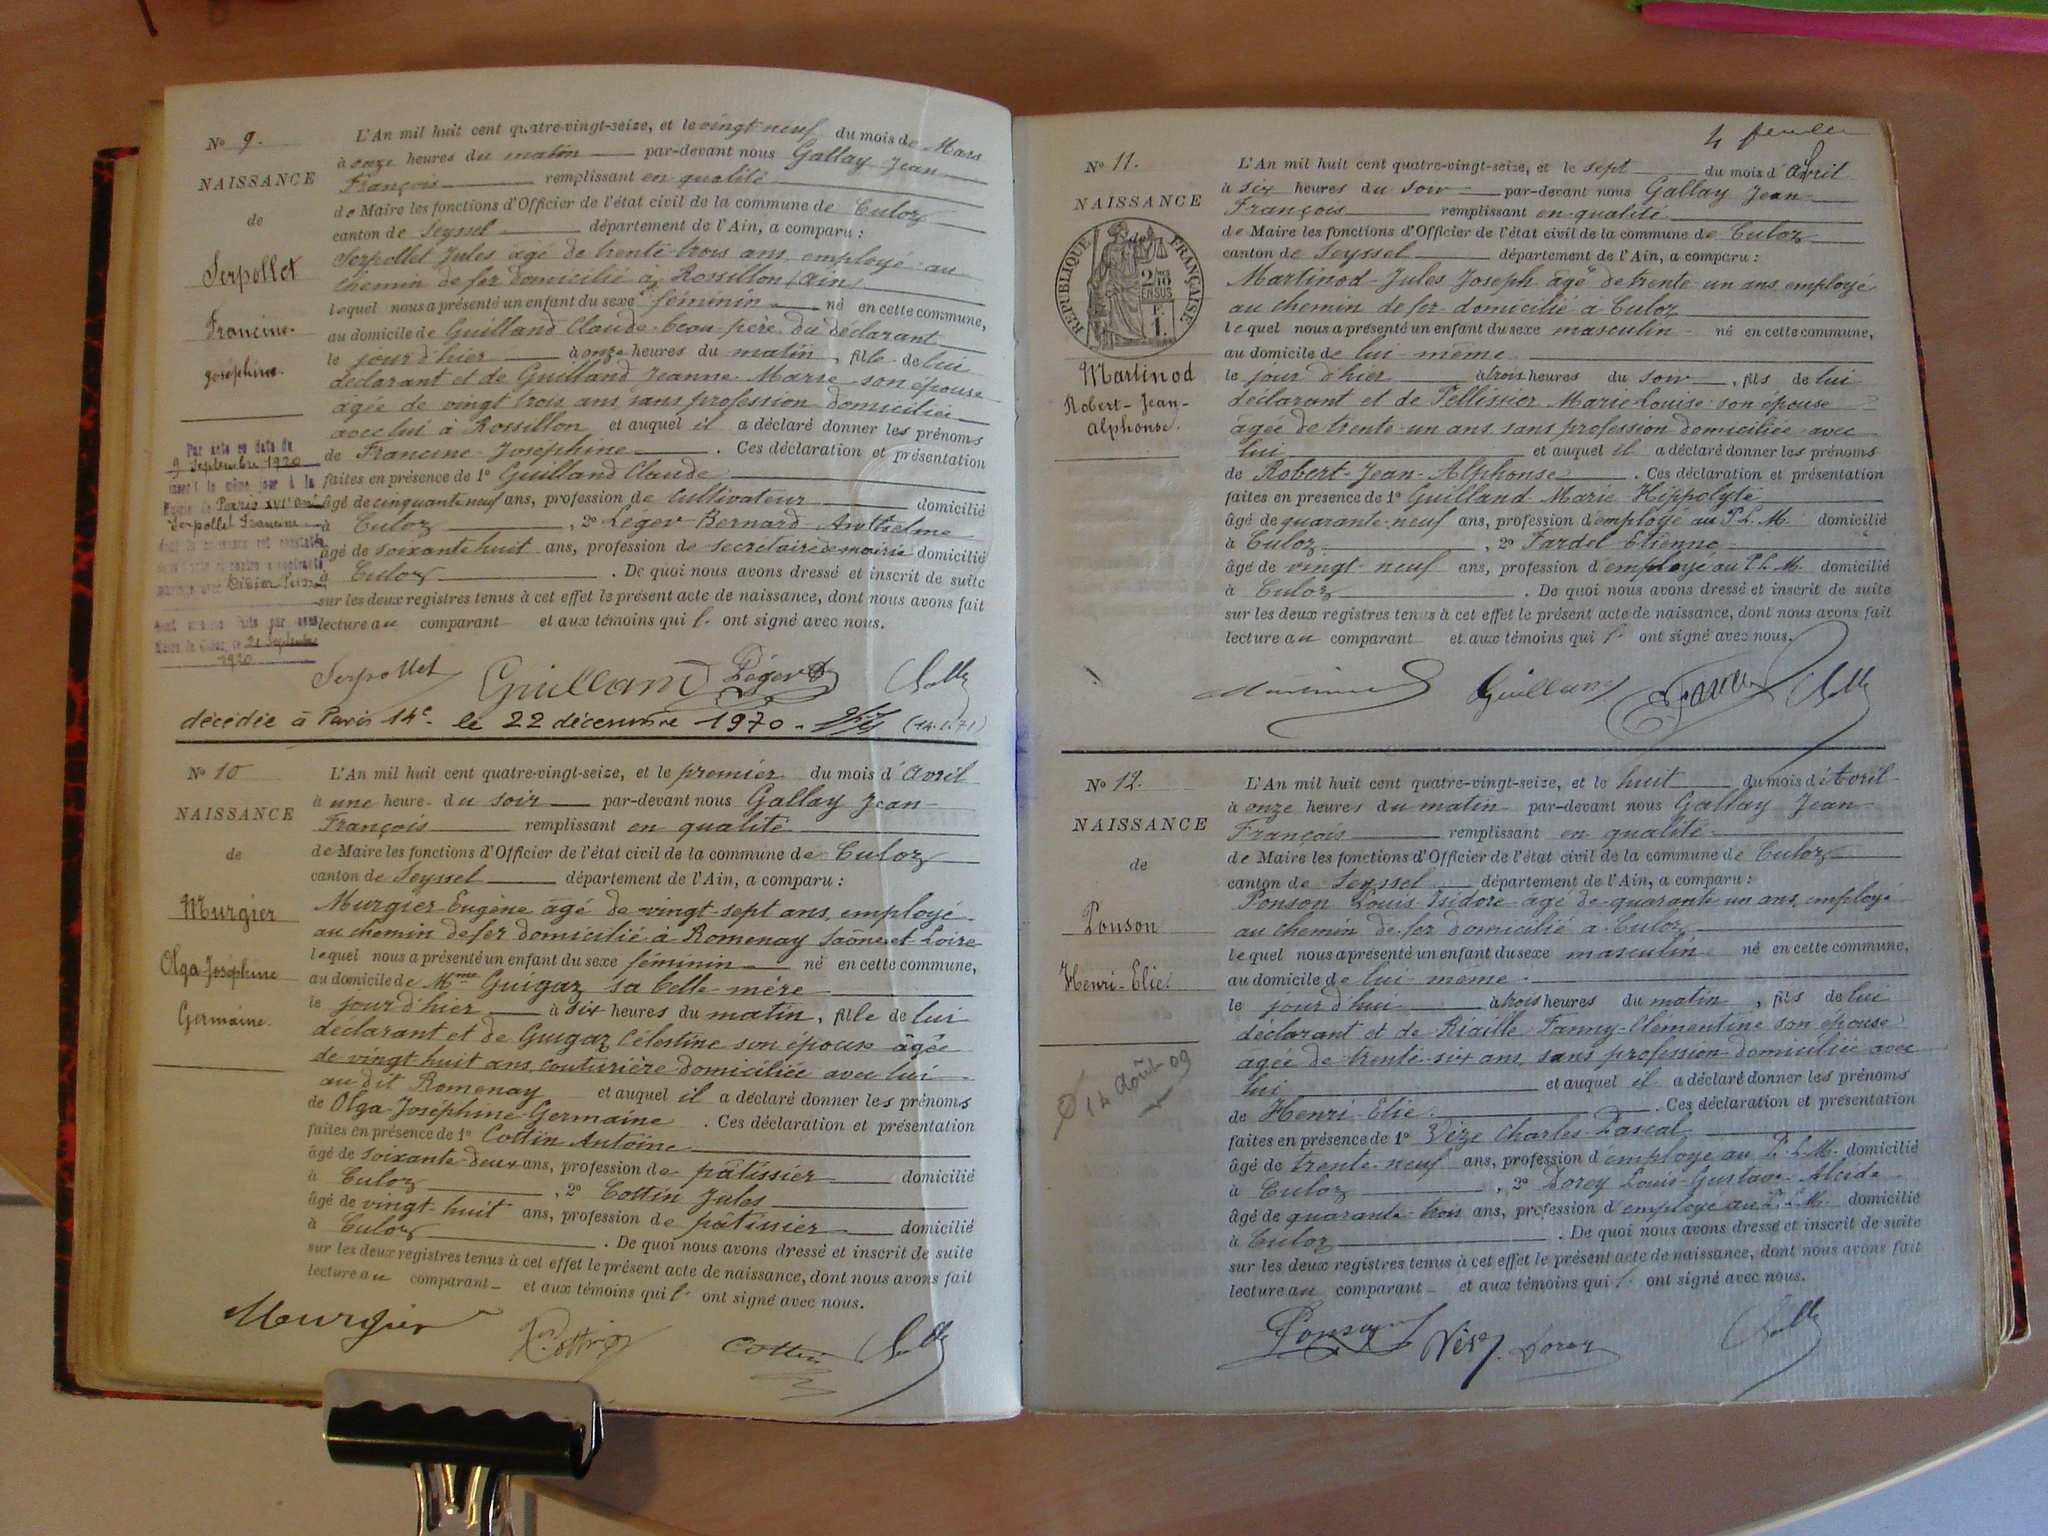 N° 9.
NAISSANCE
de
Serpollet
Francine-
Joséphine.
L'An mil huit cent quatre-vingt-seize, et le vingt neuf du mois de Mars
à onze heures du matin par-devant nous Gallay Jean
François remplissant en qualité
de Maire les fonctions d'Officier de l'état civil de la commune de Culoz
canton de Seyssel département de l'Ain, a comparu :
Serpollet Jules âgé de trente trois ans, employé au
chemin de fer domicilié à Rossillon (Ain)
lequel nous a présenté un enfant du sexe féminin né en cette commune,
au domicile de Guilland Claude beau-père du déclarant
le jour d'hier à onze heures du matin, fille de lui
déclarant et de Guilland Jeanne Marie son épouse
âgée de vingt trois ans sans profession domiciliée
avec lui à Rossillon et auquel il a déclaré donner les prénoms
de Francine Joséphine . Ces déclaration et présentation
faites en présence de 1° Guilland Claude
âgé de cinquante neuf ans, profession de cultivateur domicilié
à Culoz , 2° Léger Bernard Anthelme
âgé de soixante huit ans, profession de secrétaire de mairie domicilié
à Culoz . De quoi nous avons dressé et inscrit de suite
sur les deux registres tenus à cet effet le présent acte de naissance, dont nous avons fait
lecture au comparant et aux témoins qui l' ont signé avec nous.
Par acte en date du
9 Septembre 1920
inscrit le même jour à la
Mairie de Paris XVI
Serpollet Francine
dont la naissance est constatée
dans l'acte ci-contre a contracté
mariage avec
21 Septembre
1920
Serpollet Guilland Léger
décédée à Paris 14e. le 22 décembre 1970 - (14.1.71)
N° 10
NAISSANCE
de
Murgier
Olga Joséphine
Germaine.
L'An mil huit cent quatre-vingt-seize, et le premier du mois d'avril
à une heure du soir par-devant nous Gallay Jean-
François remplissant en qualité
de Maire les fonctions d'Officier de l'état civil de la commune de Culoz
canton de Seyssel département de l'Ain, a comparu :
Murgier Eugène âgé de vingt sept ans, employé
au chemin de fer domicilié à Romenay Saône et Loire
lequel nous a présenté un enfant du sexe féminin né en cette commune,
au domicile de Mme Guigaz sa belle-mère
le jour d'hier à six heures du matin, fille de lui
déclarant et de Guigaz Célestine son épouse âgée
de vingt huit ans couturière domiciliée avec lui
au dit Romenay et auquel il a déclaré donner les prénoms
de Olga Joséphine Germaine . Ces déclaration et présentation
faites en présence de 1° Cottin Antoine
âgé de soixante-deux ans, profession de pâtissier domicilié
à Culoz , 2° Cottin Jules
âgé de vingt-huit ans, profession de pâtissier domicilié
à Culoz . De quoi nous avons dressé et inscrit de suite
sur les deux registres tenus à cet effet le présent acte de naissance, dont nous avons fait
lecture au comparant et aux témoins qui l' ont signé avec nous.
Murgier Cottin
4 février
N° 11.
NAISSANCE
de
RÉPUBLIQUE FRANÇAISE
2/10
EN SUS
F.
1.
Martinod
Robert-Jean-
Alphonse.
L'An mil huit cent quatre-vingt-seize, et le sept du mois d'avril
à six heures du soir par-devant nous Gallay Jean-
François remplissant en qualité
de Maire les fonctions d'Officier de l'état civil de la commune de Culoz
canton de Seyssel département de l'Ain, a comparu :
Martinod Jules Joseph âgé de trente-un ans employé
au chemin de fer domicilié à Culoz
lequel nous a présenté un enfant du sexe masculin né en cette commune,
au domicile de lui-même
le jour d'hier à trois heures du soir, fils de lui
déclarant et de Pellissier Marie Louise son épouse
âgée de trente-un ans sans profession domiciliée avec
lui et auquel il a déclaré donner les prénoms
de Robert-Jean-Alphonse . Ces déclaration et présentation
faites en présence de 1° Guilland Marie Hippolyte
âgé de quarante-neuf ans, profession d'employé au P.L.M. domicilié
à Culoz , 2° Fardel Etienne
âgé de vingt-neuf ans, profession d'employé au P.L.M. domicilié
à Culoz . De quoi nous avons dressé et inscrit de suite
sur les deux registres tenus à cet effet le présent acte de naissance, dont nous avons fait
lecture au comparant et aux témoins qui l' ont signé avec nous.
Guilland
N° 12.
NAISSANCE
de
Ponson
Henri-Elie
14 août 09
L'An mil huit cent quatre-vingt-seize, et le huit du mois d'Avril
à onze heures du matin par-devant nous Gallay Jean
François remplissant en qualité
de Maire les fonctions d'Officier de l'état civil de la commune de Culoz
canton de Seyssel département de l'Ain, a comparu :
Ponson Louis Isidore âgé de quarante un ans, employé
au chemin de fer domicilié à Culoz
lequel nous a présenté un enfant du sexe masculin né en cette commune,
au domicile de lui-même
le jour d'hui à trois heures du matin, fils de lui
déclarant et de Riaille Fanny-Clémentine son épouse
âgée de trente-six ans, sans profession domiciliée avec
lui et auquel il a déclaré donner les prénoms
de Henri Elie . Ces déclaration et présentation
faites en présence de 1° Vèze Charles Pascal
âgé de trente-neuf ans, profession d'employé au P.L.M. domicilié
à Culoz , 2° Dorey Louis Gustave Alcide
âgé de quarante-trois ans, profession d'employé au P.L.M. domicilié
à Culoz . De quoi nous avons dressé et inscrit de suite
sur les deux registres tenus à cet effet le présent acte de naissance, dont nous avons fait
lecture au comparant et aux témoins qui l' ont signé avec nous.
Ponson Vèze Dorey